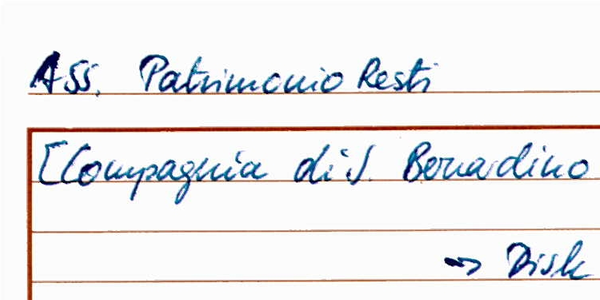 Ass. Patrimonio Resti
[Compagnia di S. Bernardino
→ Disk